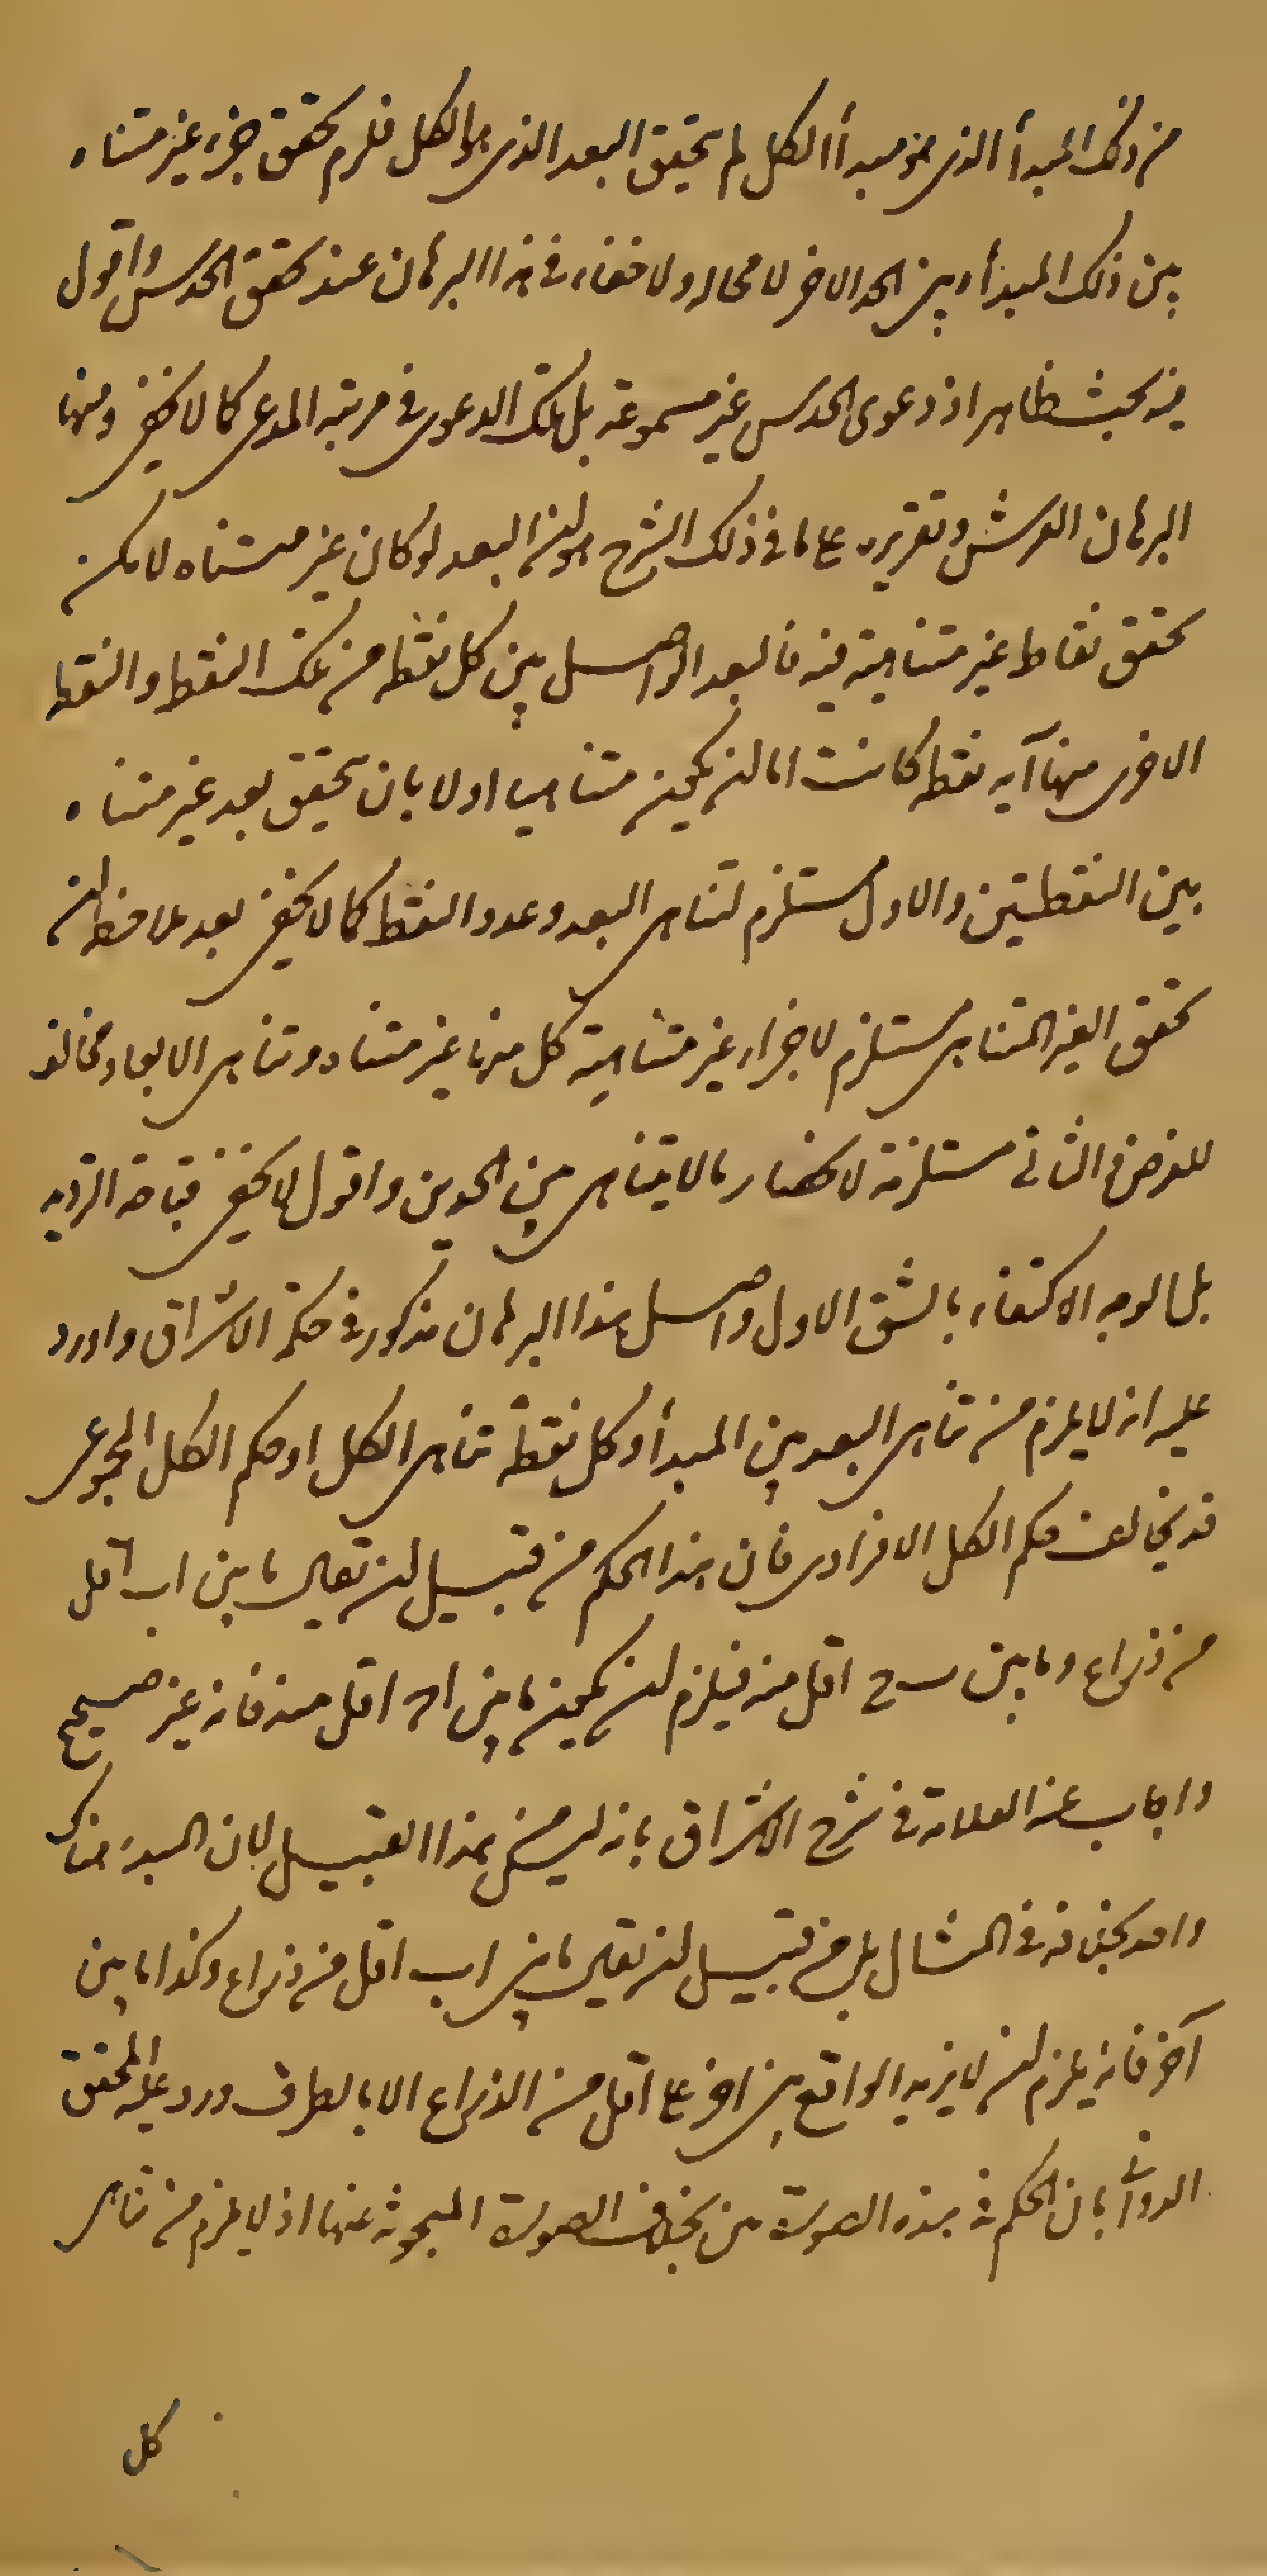 من ذلك المبدأ الذى هو مبدأ الكل لم يتحقق البعد الذى هو الكل فلزم تحقق جزء غير متناه
بين ذلك المبدأ وبين الحد الاخر لا محاله ولا خفاء فى هذا البرهان عند تحقق الحدس واقول
فيه بحث ظاهر اذ دعوى الحدس غير مسموعة بل تلك الدعوى فى مرتبه المدعى كما لا يخفى ومنها
البرهان العرشى وتقريره على ما فى ذلك الشرح هو ان البعد لو كان غير متناه لامكن
تحقق نقاط غير متناهية فيه فالبعد الواصل بين كل نقطه من تلك النقط والنقطه
الاخرى منها آيه نقطه كانت اما ان يكون متناهيا او لا بان تحقق بعد غير متناه
بين النقطتين والاول مستلزم لتناهى البعد وعدد النقط كما لا يخفى بعد ملاحظه ان
تحقق الغير المتناهى مستلزم لاجزاء غير متناهية كل منها غير متناه وتناهى الابعاد مخالف
للفرض والثانى مستلزمة لانحصار ما لا يتناهى بين الحدين واقول لا يخفى قباحة الترديد
بل الوجه الاكتفاء بالشق الاول واصل هذا البرهان مذكور فى حكمة الاشراق واورد
عليه انه لا يلزم من تناهى البعد بين المبدأ وكل نقطة تناهى الكل اذ حكم الكل المجموعى
قد يخالف حكم الكل الافرادى فان هذا الحكم من قبيل ان يقال ما بين ا ب اقل
من ذراع وما بين ب ح اقل منه فيلزم ان يكون ما بين ا ح اقل منه فانه غير صحيح
واجاب عنه العلامة فى شرح الاشراق بانه ليس من هذا القبيل لان المبدء هناك
واحد بخلافه فى المثال بل من قبيل ان يقال ما بين ا ب اقل من ذراع وكذا ما بين
آخر فانه يلزم ان لا يزيد الواقع بين اخر على اقل من الذراع الا بالطرف ورد عليه المحقق
الدوانى بان الحكم فى هذه الصورة من بخلاف الصورة المبحوثه عنها اذ لا يلزم من تناهى
كل